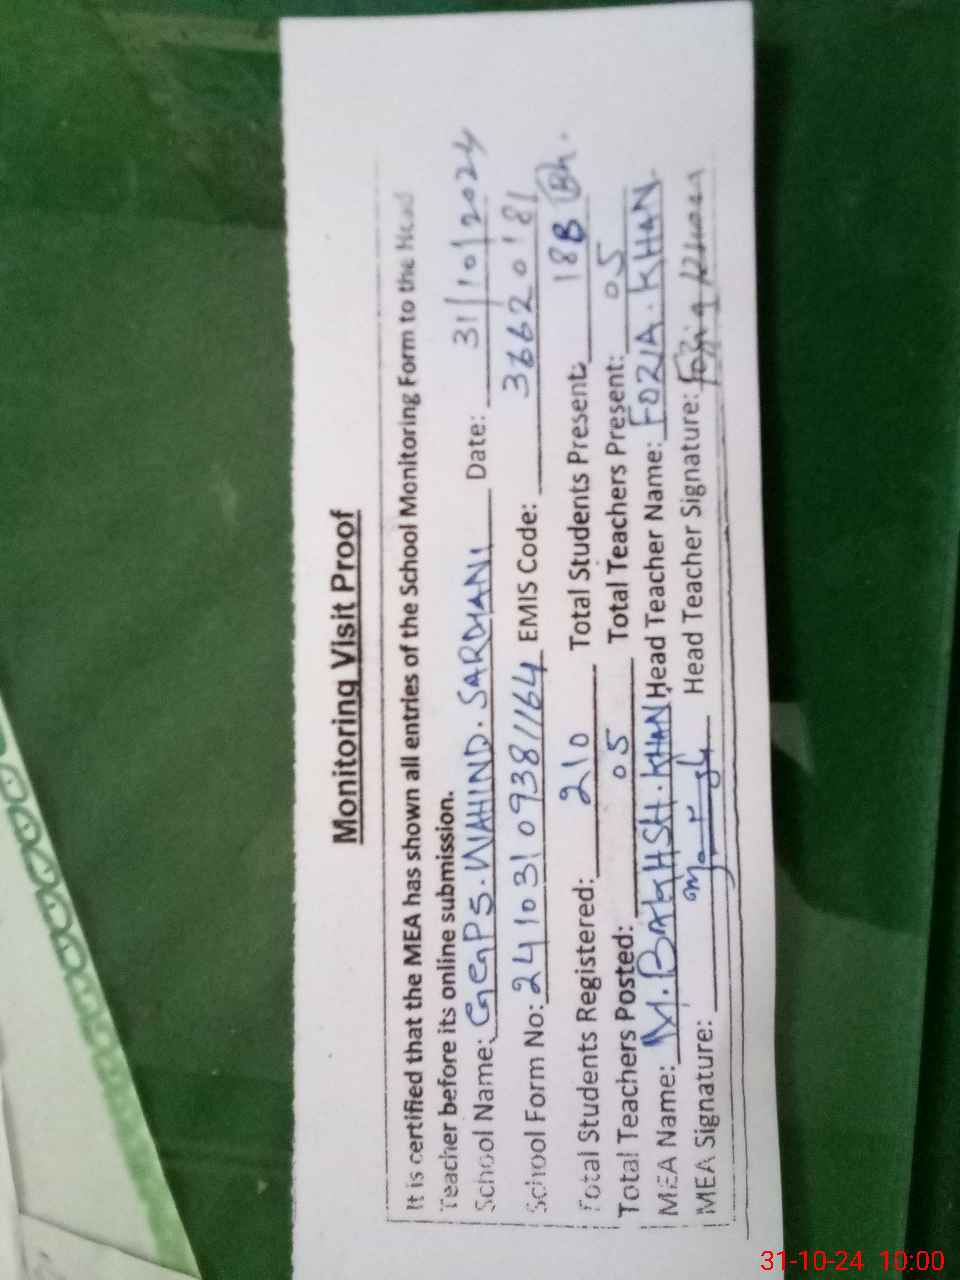 Monitoring Visit Proof
It is certified that the MEA has shown all entries of the School Monitoring Form to the Head
Teacher before its online submission.
School Name: GGPS. WAHIND. SARDYANI Date: 31/10/2024
School Form No: 24103109381164 EMIS Code: 36620181
Total Students Registered: 210 Total Students Present: 188 Bh.
Total Teachers Posted: 05 Total Teachers Present: 05
MEA Name: M. BAKHSH. KHAN Head Teacher Name: FOZIA. KHAN.
MEA Signature: Head Teacher Signature: Fozia
31-10-24 10:00